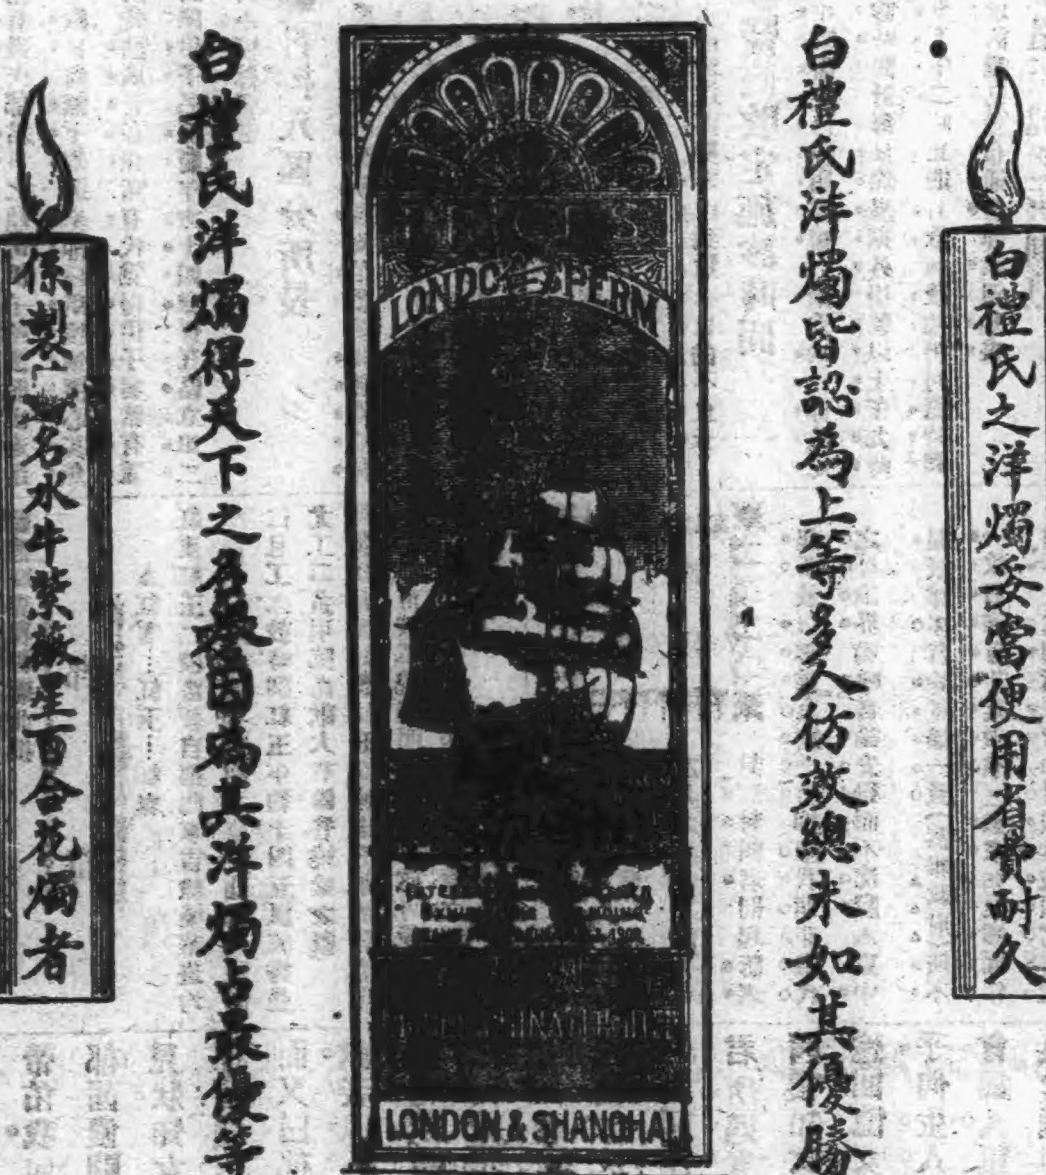 白禮氏之洋燭妥當便用省費耐久
白禮氏洋燭皆認為上等多人仿效總未如其優勝
PRICE'S
LONDON SPERM
LONDON & SHANGHAI
白禮氏洋燭得天下之名譽因為其洋燭占最優等
係製名水牛紫薇星百合花燭者